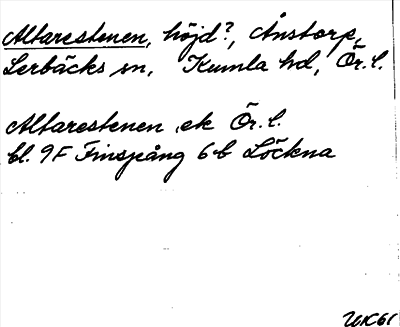 Altarestenen, höjd?, Ånstorp,
Lerbäcks sn, Kumla hd, Ör. l.
Altarestenen, ek Ör. l.
bl. 9F Finspång 6b Löckna
UK61